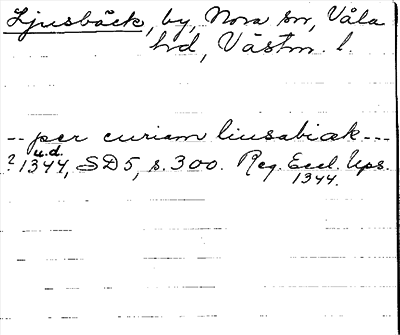 Ljusbäck, by, Nora sn, Våla
hd, Västm. l.
-- per curiam liusabiæk ---
u.d.
? 1344, SD 5, s. 300. Reg. Eccl. Ups.
1344.